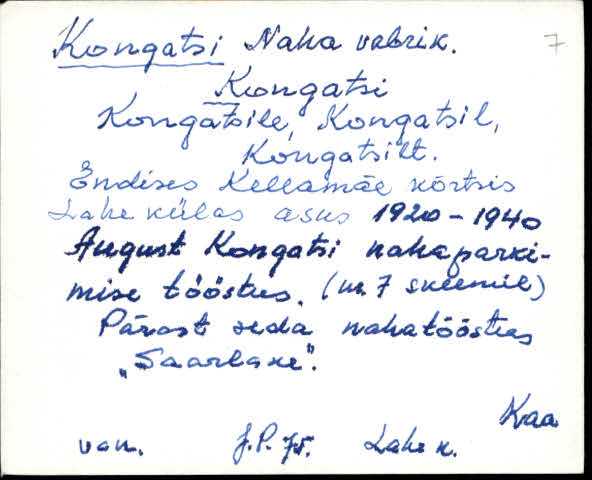 Kongatsi Naha vabrik.
7
Kongatsi
Kongatsile, Kongatsil,
Kongatsilt.
Endises Kellamäe kõrtsis
Lahe külas asus 1920-1940
August Kongatsi nahaparki-
mise tööstus. (nr. 7 skeemil)
Pärast seda nahatööstus
"Saarlane".
Kaa
van. J.P. 75. Lahe k.